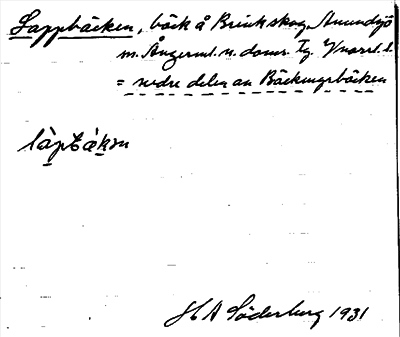 Lappbäcken, bäck å Brink skog, Anundsjö
m. Ångerml. n. doms. Tg.
= nedre delen av Bäckmyrbäcken
H A Söderberg 1931